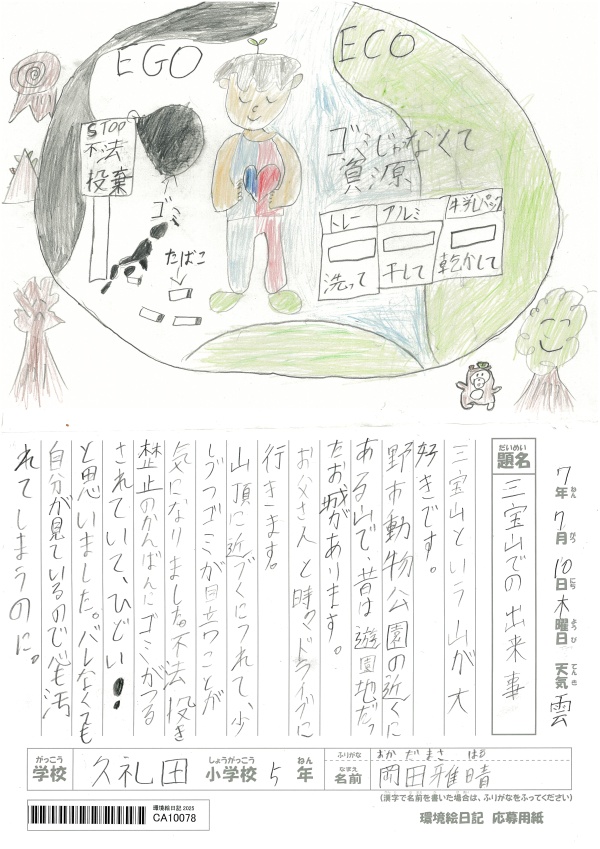 EGO
ECO
STOP
不法
投棄
ゴミ
たばこ
ゴミじゃなくて
資源
トレー
アルミ
牛乳パック
洗って
干して
乾かして
7年7月10日木曜日 天気 雲
ねん がつ にち ようび てんき
だいめい
題名
三宝山での出来事
三宝山という山が大
好きです。
野市動物公園の近くに
ある山で、昔は遊園地だっ
たお城があります。
お父さんと時々ドライブに
行きます。
山頂に近づくにつれて、少
しずつゴミが目立つことが
気になりました。不法投き
禁止のかんばんにゴミがつる
されていて、ひどい!!
と思いました。バレなくても
自分が見ているので心も汚
れてしまうのに。
がっこう しょうがっこう ねん
学校 久礼田 小学校 5 年
ふりがな おかだ まさはる
なまえ
名前 岡田雅晴
(漢字で名前を書いた場合は、ふりがなをふってください)
環境絵日記 2025
CA10078
環境絵日記 応募用紙